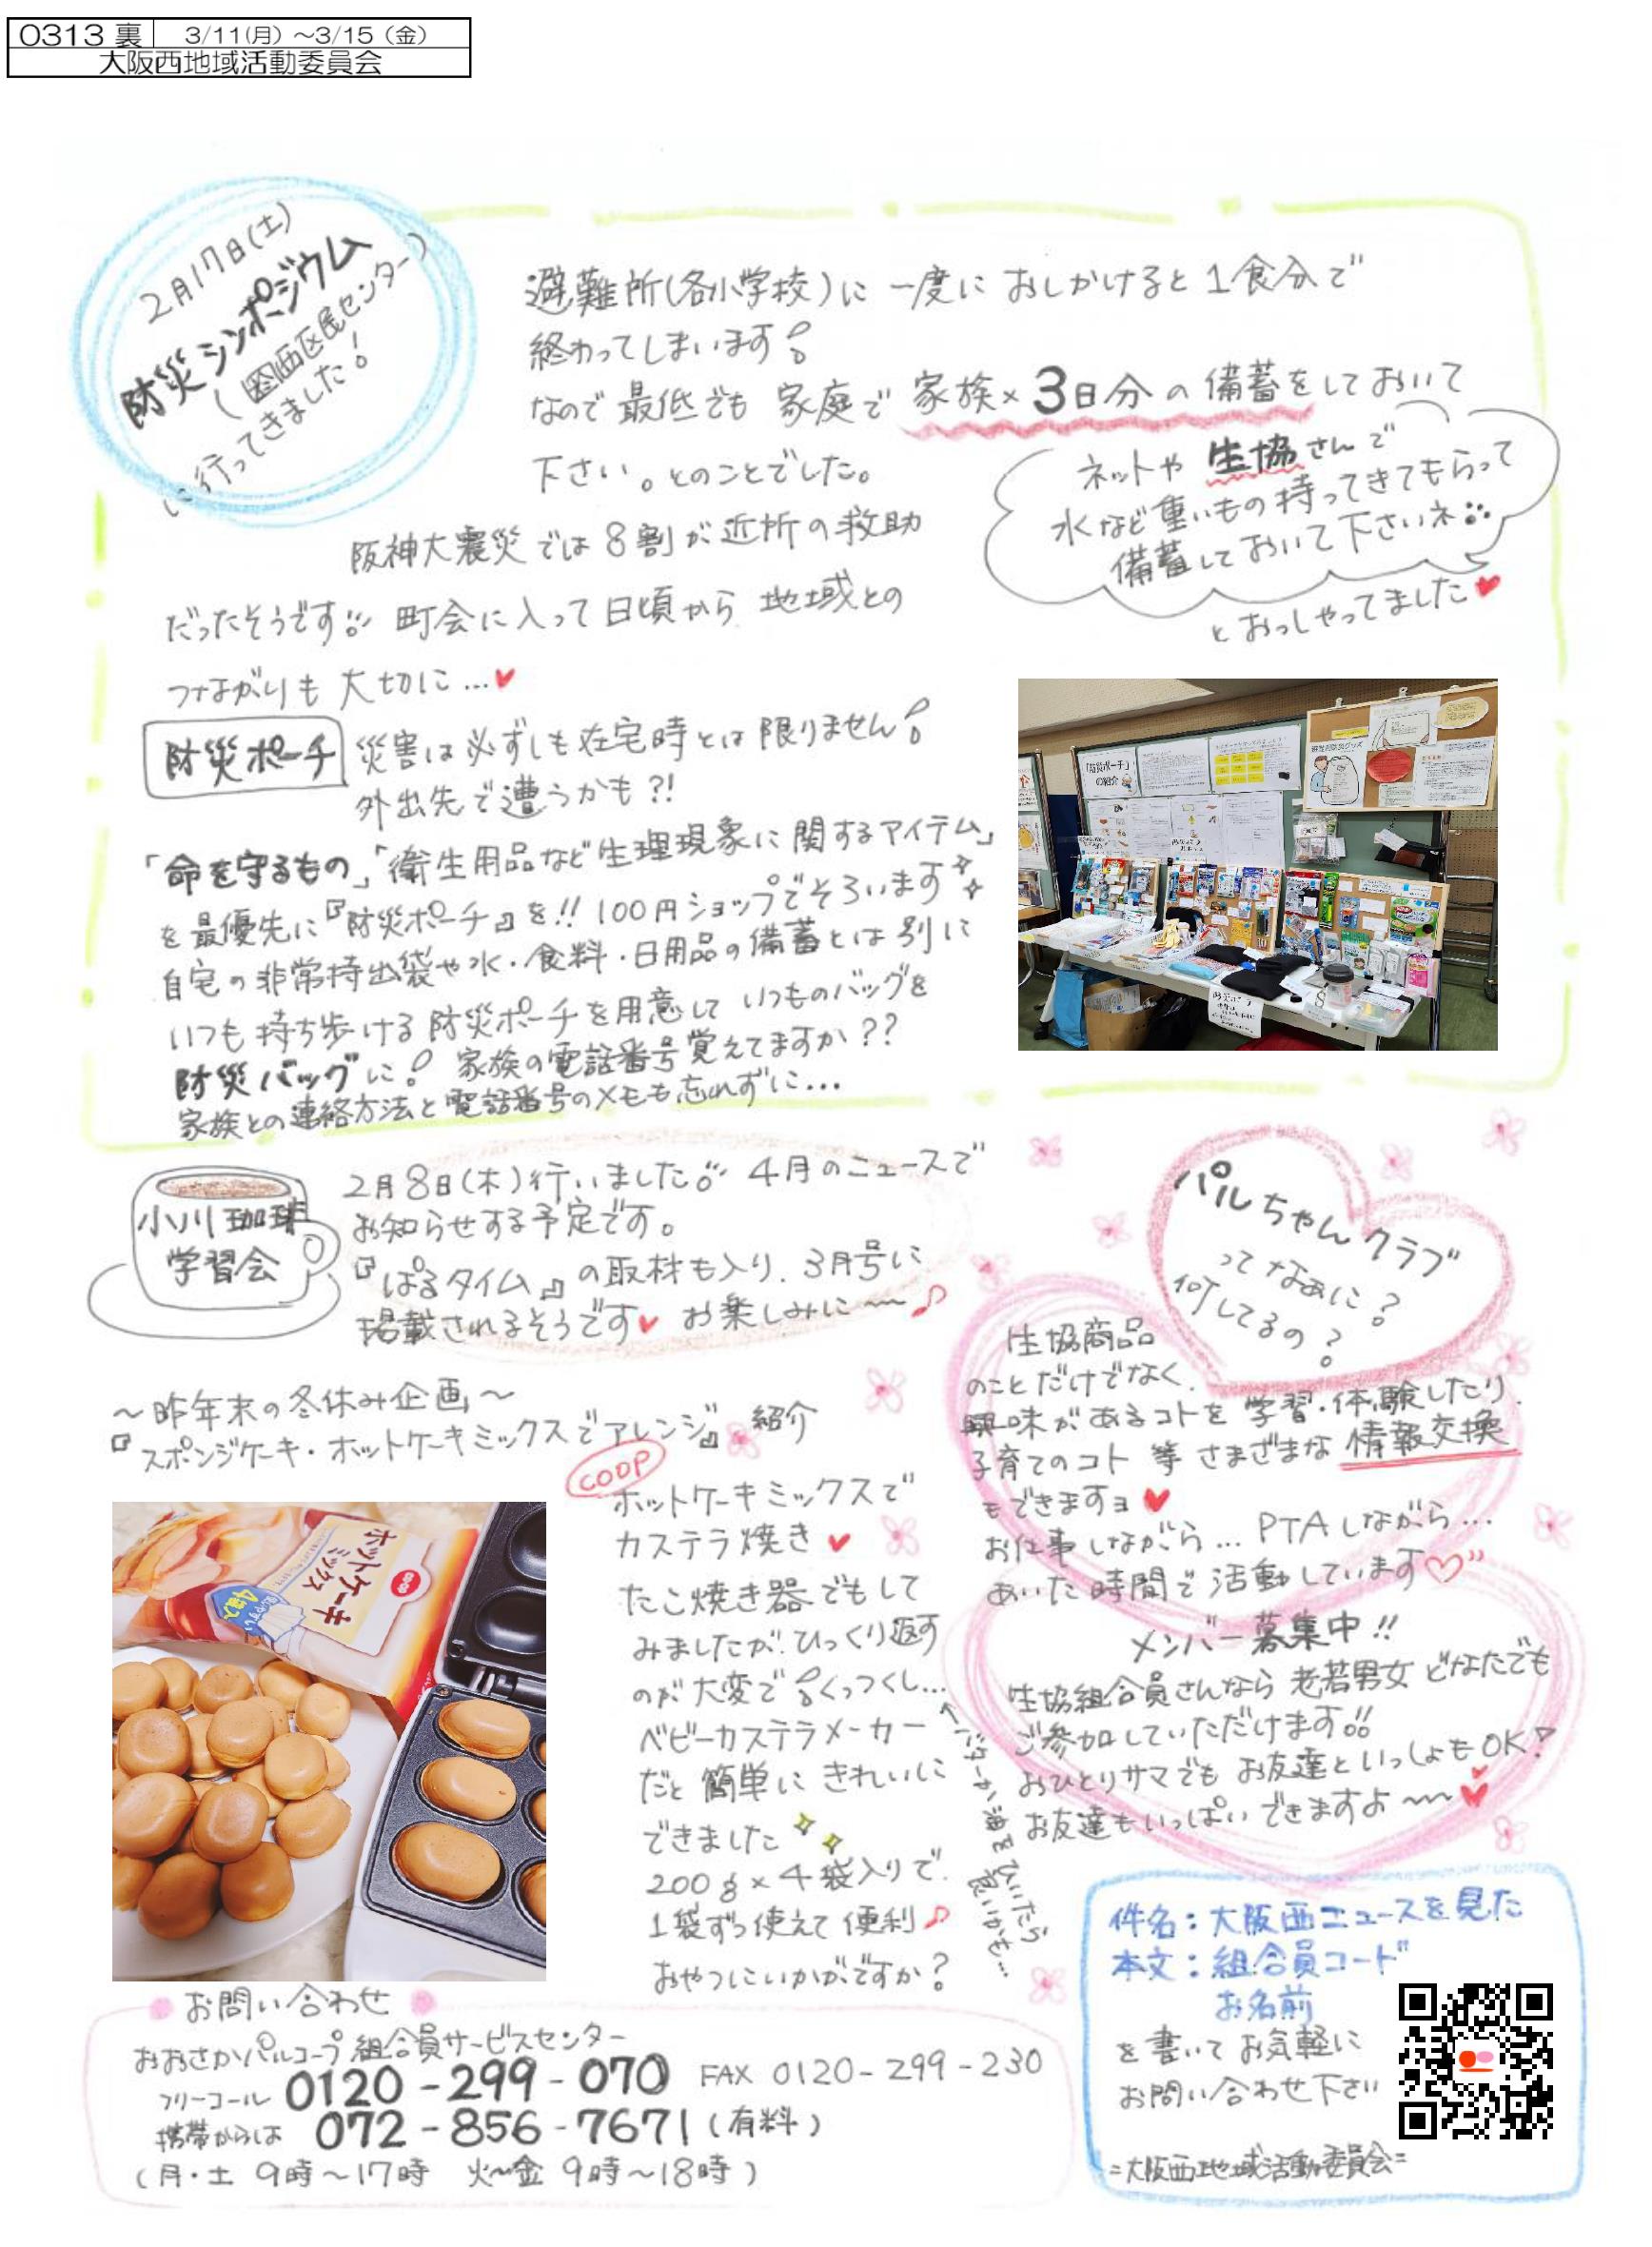 0313 裏 3/11(月) ～3/15（金）
大阪西地域活動委員会
2月17日(土)
防災シンポジウム
(西区民センター)
に行ってきました!
避難所(各小学校)に 一度に おしかけると 1食分で
終わってしまいます!
なので 最低でも 家庭で 家族×3日分の 備蓄をしておいて
下さい。とのことでした。
ネットや 生協さんで
水など重いもの持ってきてもらって
備蓄しておいて下さいネ
とおっしゃってました
阪神大震災では8割が近所の救助
だったそうです!! 町会に入って日頃から 地域との
つながりも 大切に…
防災ポーチ
災害は必ずしも在宅時とは限りません!
外出先で遭うかも?!
「命を守るもの」「衛生用品など生理現象に関するアイテム」
を最優先に『防災ポーチ』を!! 100円ショップでそろいます
自宅の非常持出袋や水・食料・日用品の備蓄とは別に
いつも持ち歩ける防災ポーチを用意して いつものバッグを
防災バッグに! 家族の電話番号覚えてますか??
家族との連絡方法と電話番号のメモも忘れずに…
「防災ポーチ」
の紹介
小川珈琲
学習会
2月8日(木)行いました!! 4月のニュースで
お知らせする予定です。
『ぱるタイム』の取材も入り、3月号に
掲載されるそうです お楽しみに〜♪
パルちゃんクラブ
ってなあに?
何してるの?
生協商品
のことだけでなく、
興味があるコトを 学習・体験したり、
子育てのコト 等 さまざまな 情報交換
もできますョ
お仕事しながら… PTAしながら…
あいた時間で活動しています♡
メンバー募集中!!
生協組合員さんなら 老若男女 どなたでも
ご参加していただけます!!
おひとりサマでも お友達といっしょもOK!
お友達もいっぱいできますよ〜
〜昨年末の冬休み企画〜
『スポンジケーキ・ホットケーキミックスでアレンジ』紹介
COOP
ホットケーキミックスで
カステラ焼き
たこ焼き器でもして
みましたが、ひっくり返す
のが大変で!くっつくし…
ベビーカステラメーカー
だと 簡単に きれいに
できました
200g×4袋入りで、
1袋ずつ使えて便利♪
おやつにいかがですか?
バターか油をひいたら
良いかも…
ホットケーキ
ミックス
お問い合わせ
おおさかパルコープ 組合員サービスセンター
フリーコール 0120-299-070 FAX 0120-299-230
携帯からは 072-856-7671(有料)
(月・土 9時〜17時 火〜金 9時〜18時)
件名：大阪西ニュースを見た
本文：組合員コード
お名前
を書いてお気軽に
お問い合わせ下さい
=大阪西地域活動委員会=